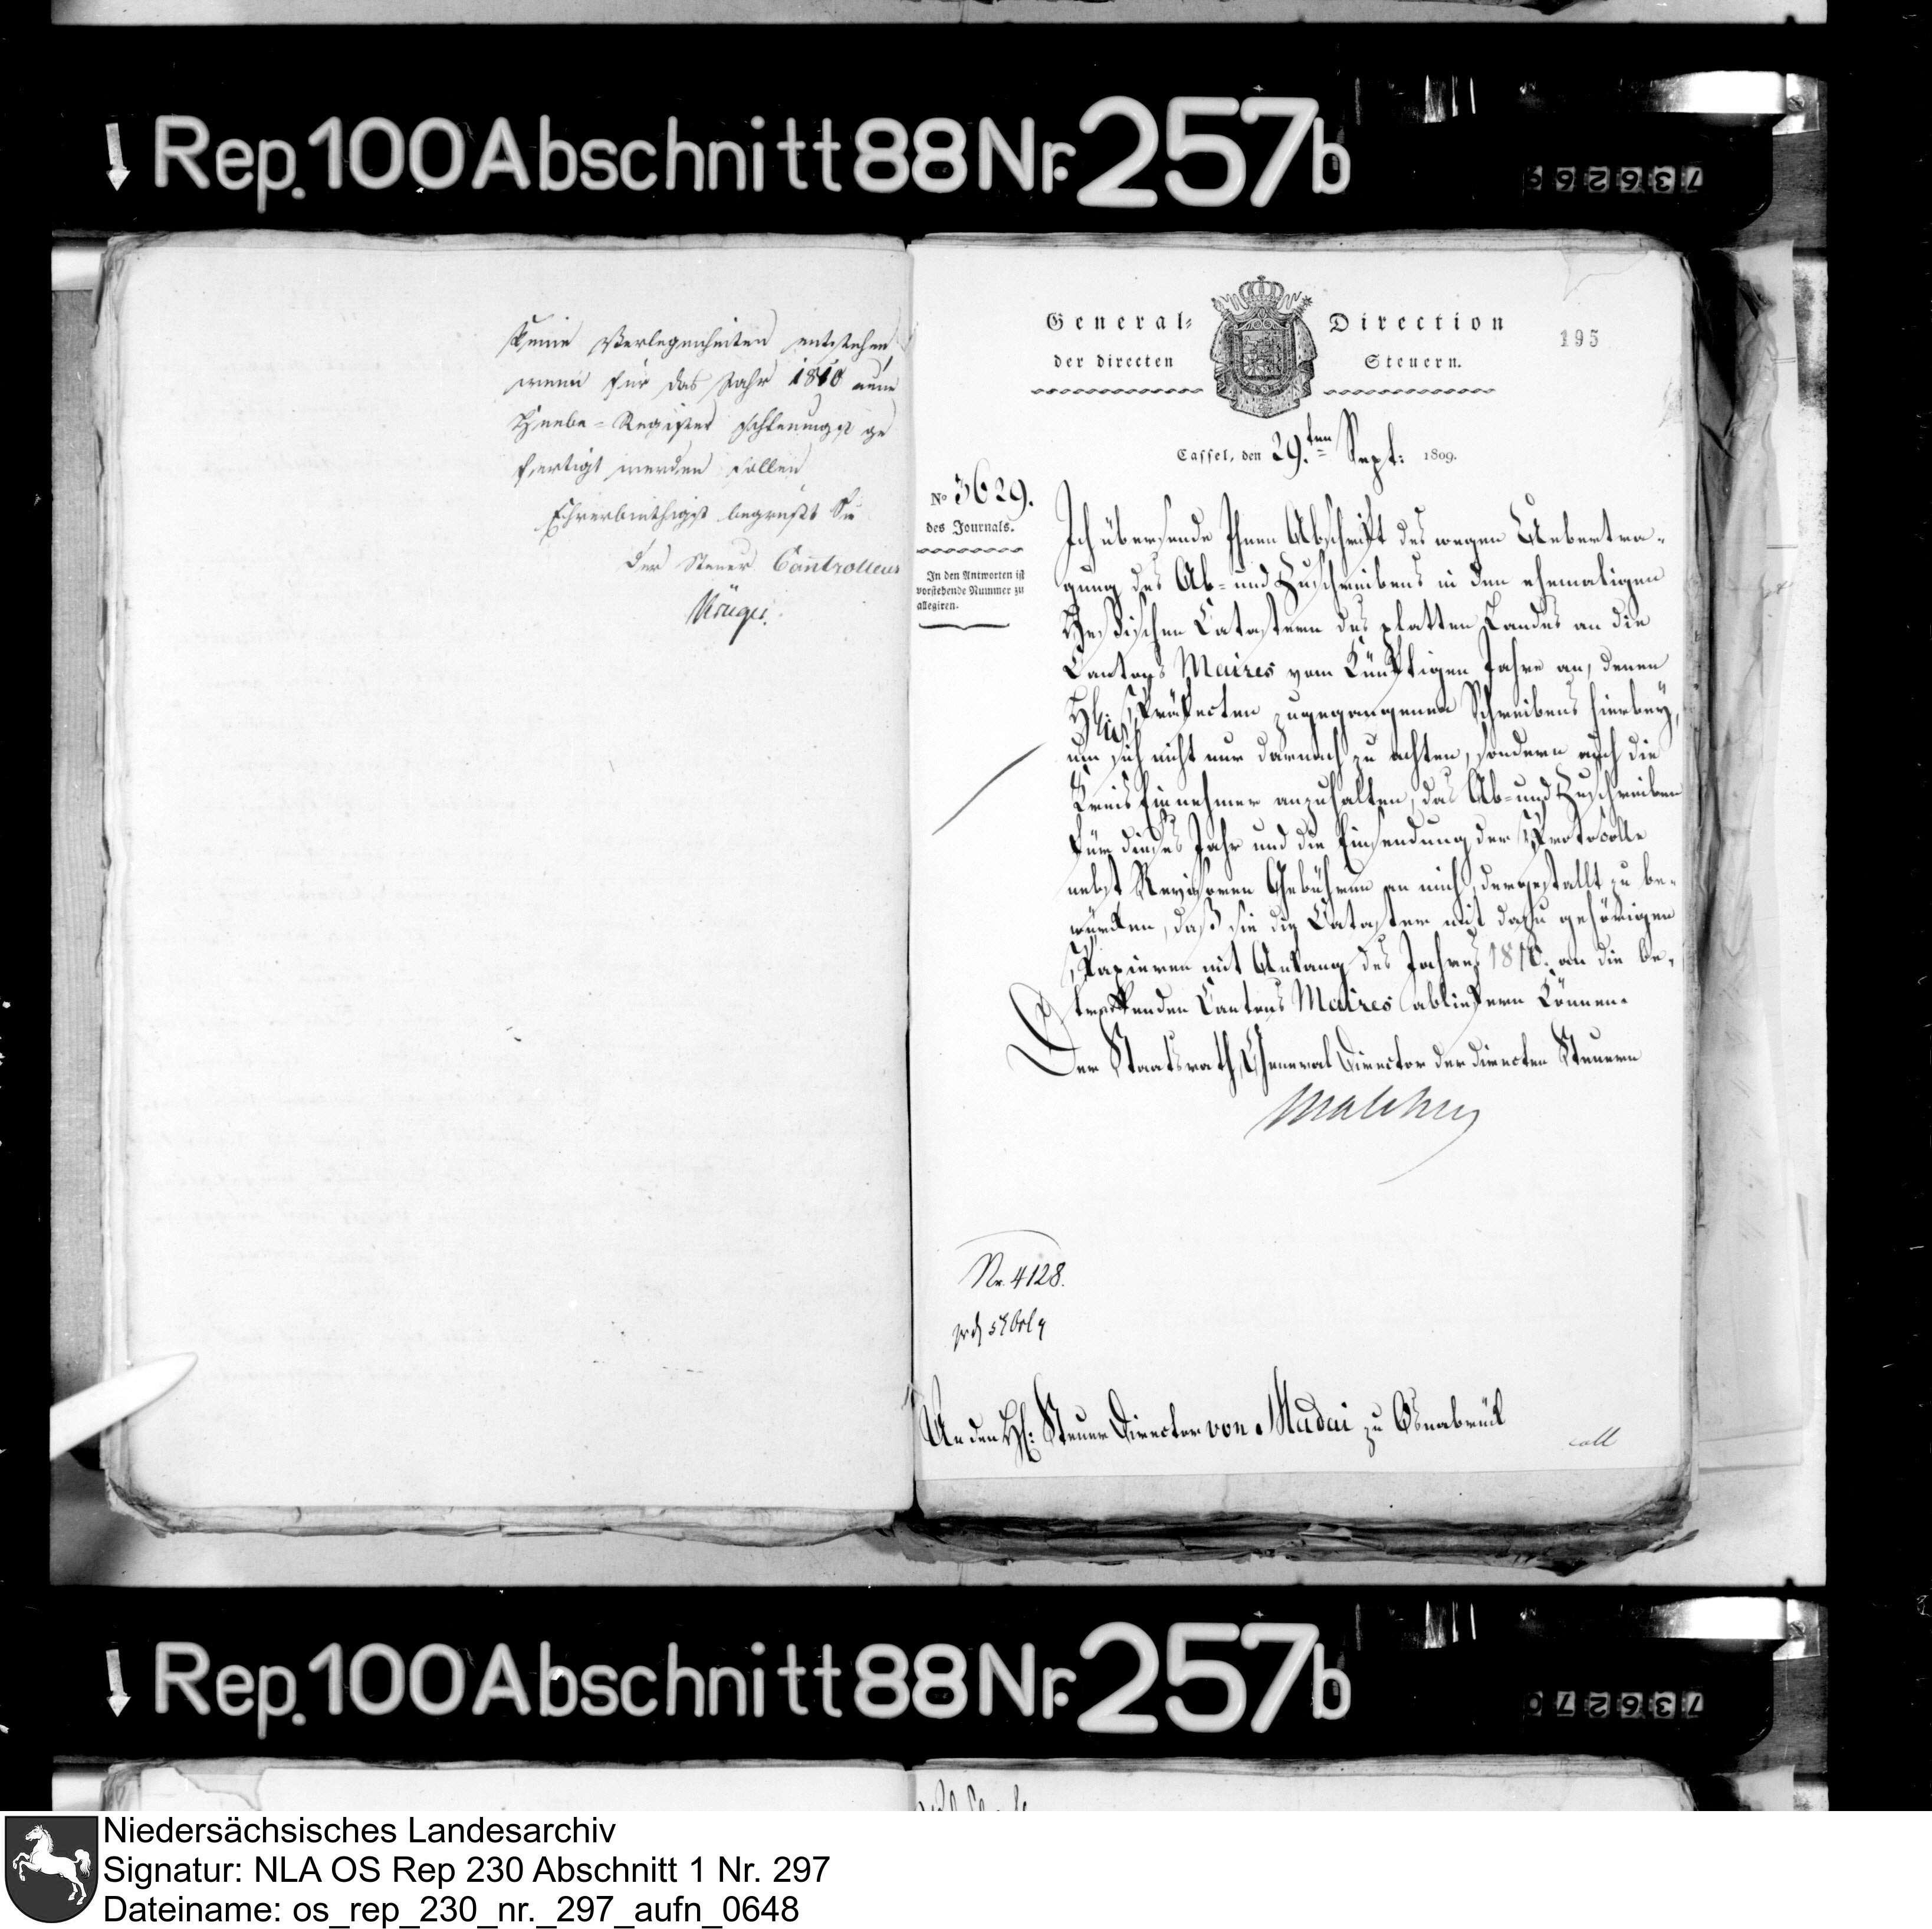 Rep. 100 Abschnitt 88 Nr. 257b
736269
keine Verlegenheiten entstehen
wenn für das Jahr 1810 neue
Heebe-Register schleunigst ge
fertigt werden sollen
Ehrerbiethigst begrüßt Sie
der Steuer Controlleur
Krüger.
General-Direction
der directen Steuern.
195
Cassel, den 29.ten Sept: 1809.
No 3629.
des Journals.
In den Antworten ist
vorstehende Nummer zu
allegiren.
Ich übersende Ihnen Abschrift des wegen Uebertra-
gung des Ab- und Zuschreibens in den ehemaligen
Hessischen Catastern des platten Landes an die
Cantons Maires vom künftigen Jahre an, denen
Präfecten zugegangenen Schreibens hierbey,
um sich nicht nur darnach zu achten, sondern auch die
Kreis Einnehmer anzuhalten, das Ab- und Zuschreiben
für dieses Jahr und die Einsendung der Protocolle
nebst Revisoren Gebühren an mich, dergestallt zu be-
würken, daß sie die Cataster mit dazu gehörigen
Papieren mit Anfang des Jahres 1810. an die be-
treffenden Cantons Maires abliefern können.
Der Staatsrath, General Director der directen Steuern
Malchus
Nr. 4128.
An den H: Steuer Director von Madai zu Osnabrück
Rep. 100 Abschnitt 88 Nr. 257b
736270
Niedersächsisches Landesarchiv
Signatur: NLA OS Rep 230 Abschnitt 1 Nr. 297
Dateiname: os_rep_230_nr._297_aufn_0648